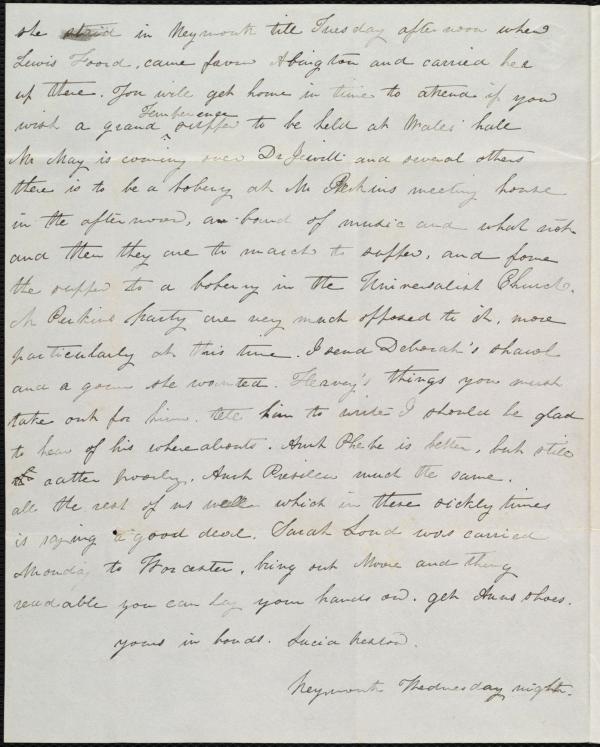 she staid in Weymouth till Tuesday afternoon when
Lewis Foord, came from Abington and carried her
up there. You will get home in time to attend if you
Temperence
wish a grand supper to be held at Wales' hall
Mr May is coming over Dr Jewitt and several others
there is to be a bobery at Mr Perkins meeting house
in the afternoon, a band of music and what not
and then they are to march to supper, and from
the supper to a bobery in the Universalist Church.
Mr Perkins party are very much opposed to it, more
particularly at this time. I send Deborah's shawl
and a gown she wanted. Hervey's things you must
take out for him. tell him to write I should be glad
to hear of his whereabouts. Aunt Phebe is better, but still
rather poorly, Aunt Priscilla much the same.
all the rest of us well which in these sickly times
is saying a good deal. Sarah Loud was carried
Monday to Worcester, bring out Moore and thing
readable you can lay your hands on. get Anns shoes.
yours in bonds. Lucia Weston.
Weymouth Wednesday night.